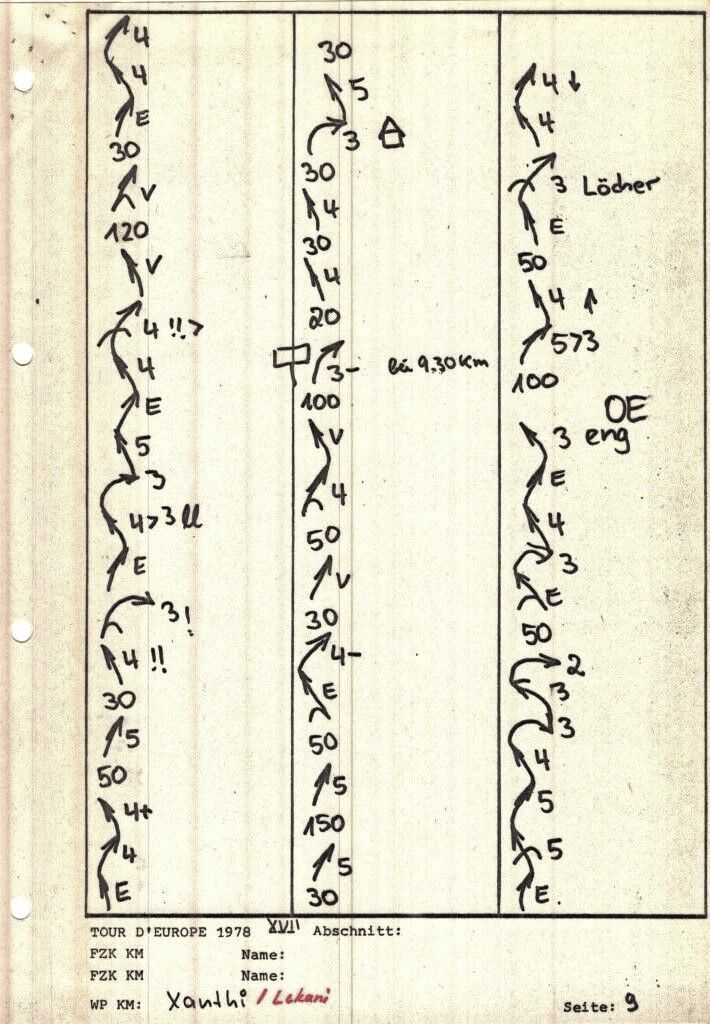 4
4
E
30
V
120
V
4 !! >
4
E
5
3
4>3 ll
E
3!
4 !!
30
5
50
4+
4
E
30
5
3
30
4
30
4
20
3- bei 9.30 Km
100
V
4
50
V
30
4-
E
50
5
150
5
30
4 ↓
4
3 Löcher
E
50
4 ↑
5>3
100
OE
3 eng
E
4
3
E
50
2
3
3
4
5
5
E.
TOUR D'EUROPE 1978 XVII Abschnitt:
FZK KM Name:
FZK KM Name:
WP KM: Xanthi / Lekani Seite: 9